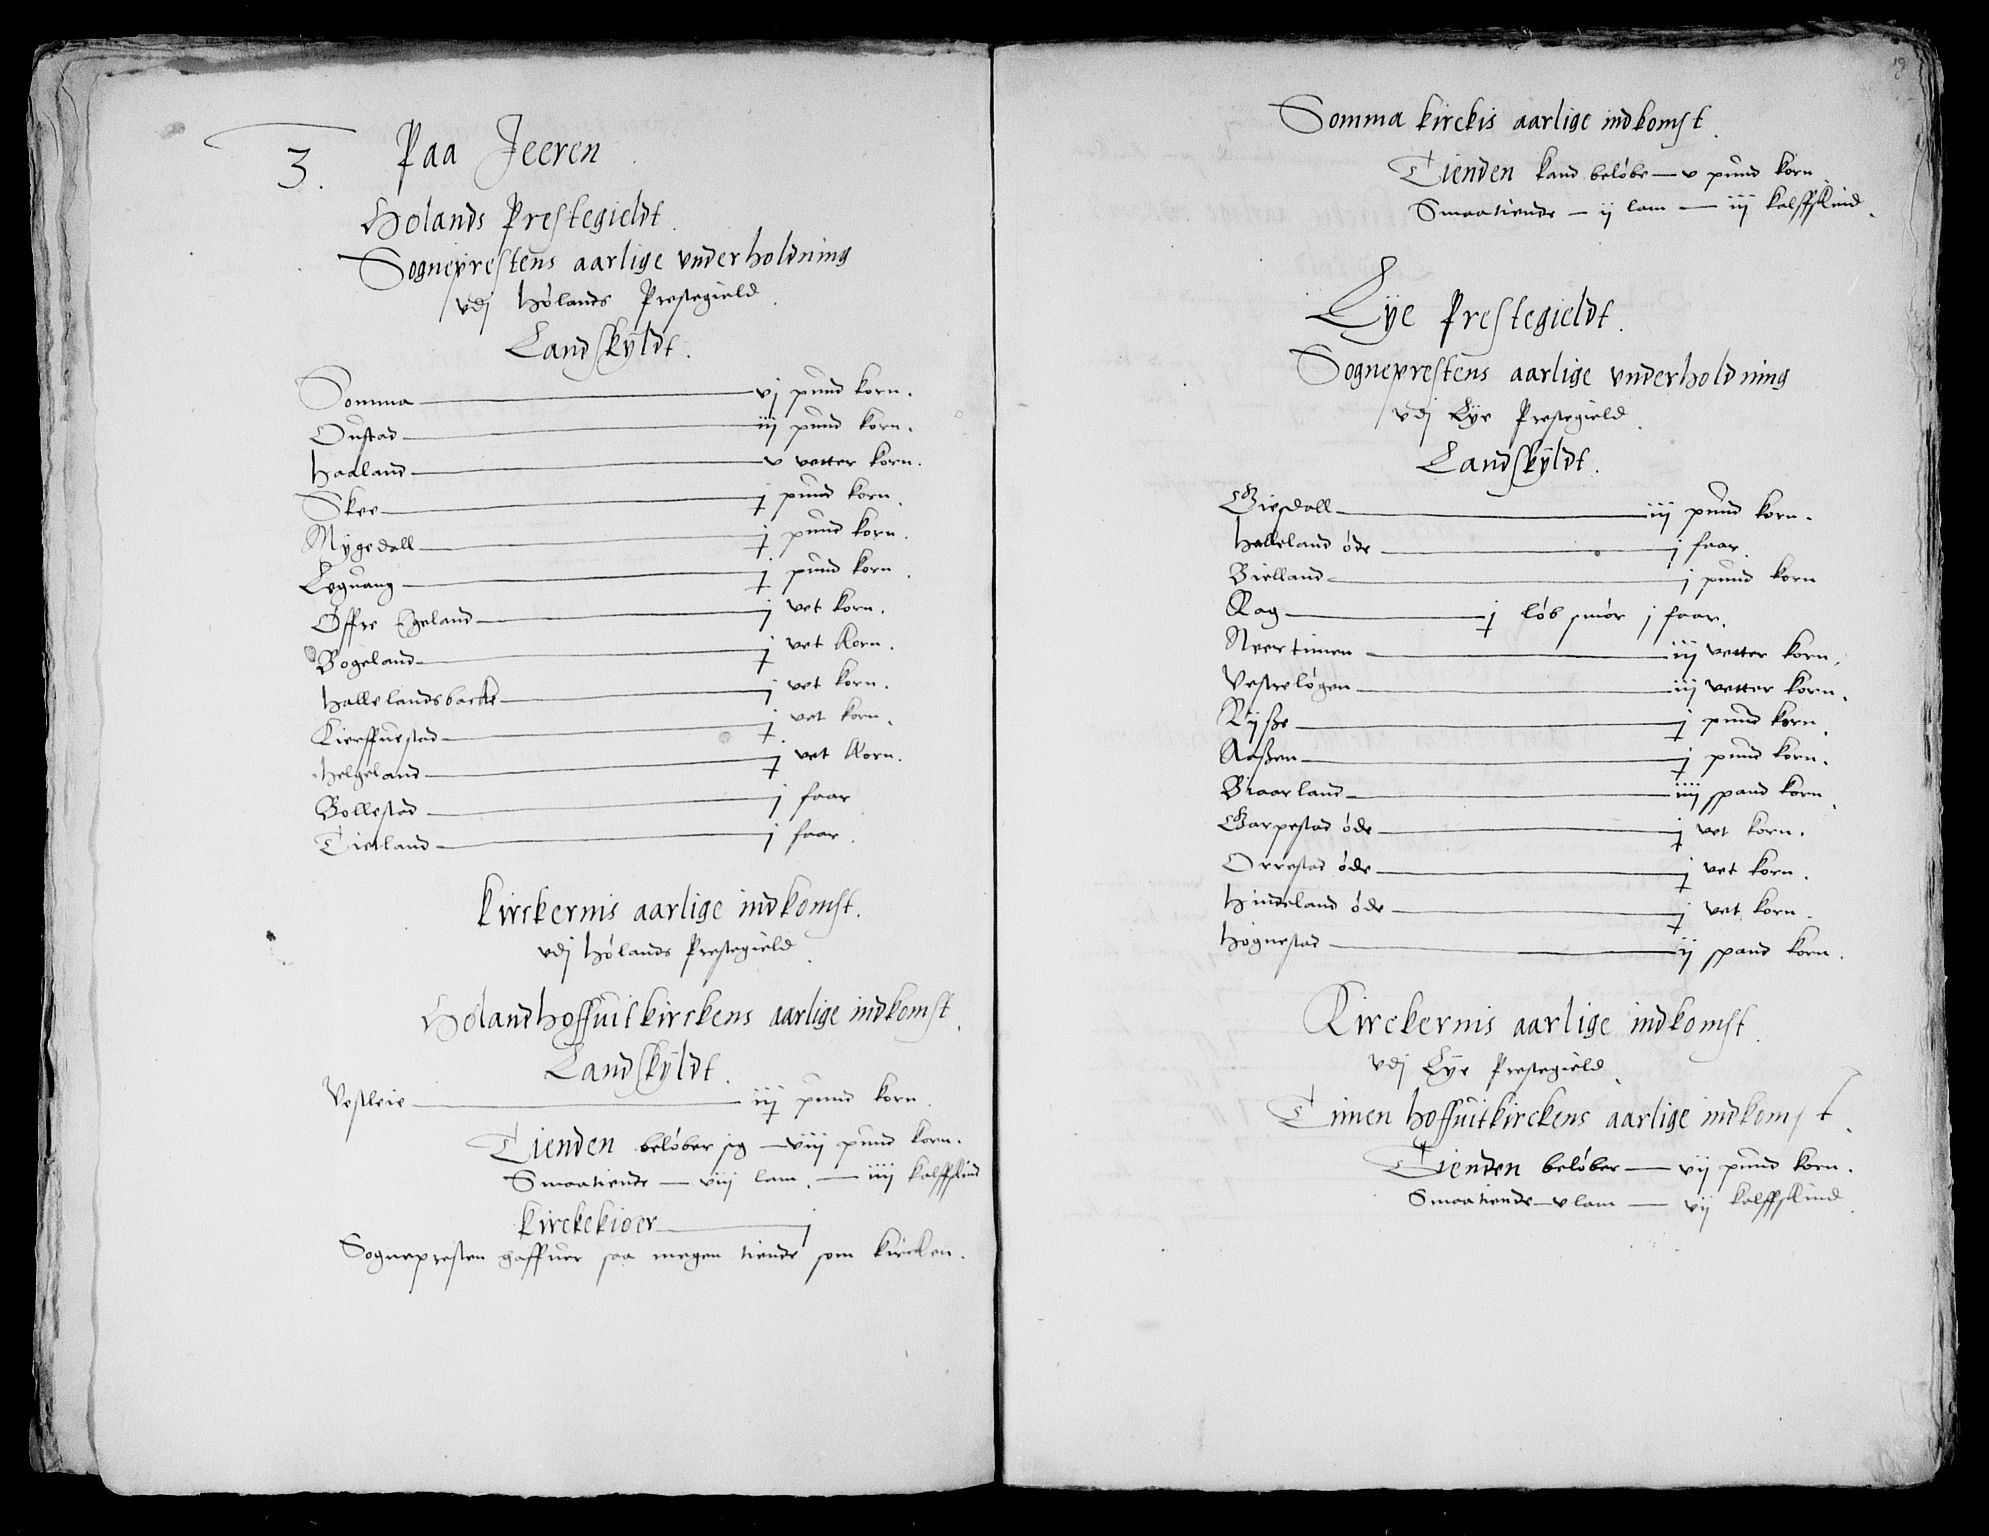 3. Paa Jeeren.
Holands Prestegieldt.
Sogneprestens aarlige vnderholdning
vdj Hølands Prestegield.
Landskyldt.
Somma — vj pund korn.
Oustad — iij pund korn.
Haaland — v vetter korn.
Skee — j pund korn.
Mygedall — j pund korn.
Leguang — j pund korn.
Øffre Egeland — j vet korn.
Bogeland — j vet korn.
Hallelandsbacke — j vet korn.
Kierffuestad — j vet korn.
Helgeland — j vet korn.
Bollestad — j faar
Tietland — j faar.
Kirckernis aarlige indkomst.
vdj Hølands Prestegield.
Holand hoffuitkirckens aarlige indkomst.
Landskyldt.
Vestleie — iij pund korn.
Tienden beløber sig — viij pund korn.
Smaatiende — viij lam. — iiij kalffskind
Kirckekioer — j
Sognepresten haffuer saa megen tiende som kircken.
19
Somma kirckis aarlige indkomst.
Tienden kand beløbe — v pund korn.
Smaatiende — ij lam — iij kalffskind.
Lye Prestegieldt.
Sogneprestens aarlige vnderholdning
vdj Lye Prestegield.
Landskyldt.
Giesdall — iij pund korn.
Halleland øde — j faar.
Bielland — j pund korn
Rag — j løb smør j faar.
Neertimen — iij vetter korn.
Vestreløgen — iij vetter korn.
Rysse — j pund korn.
Aassen — j pund korn.
Biaarland — iiij spand korn.
Garpestad øde — j vet korn.
Orrestad øde — j vet korn.
Hindeland øde — j vet korn.
Høgnestad — ij spand korn.
Kirckernis aarlige indkomst.
vdj Lye Prestegield.
Timen hoffuitkirckens aarlige indkomst.
Tienden beløber — vij pund korn.
Smaatiende — v lam — vij kalffskind.